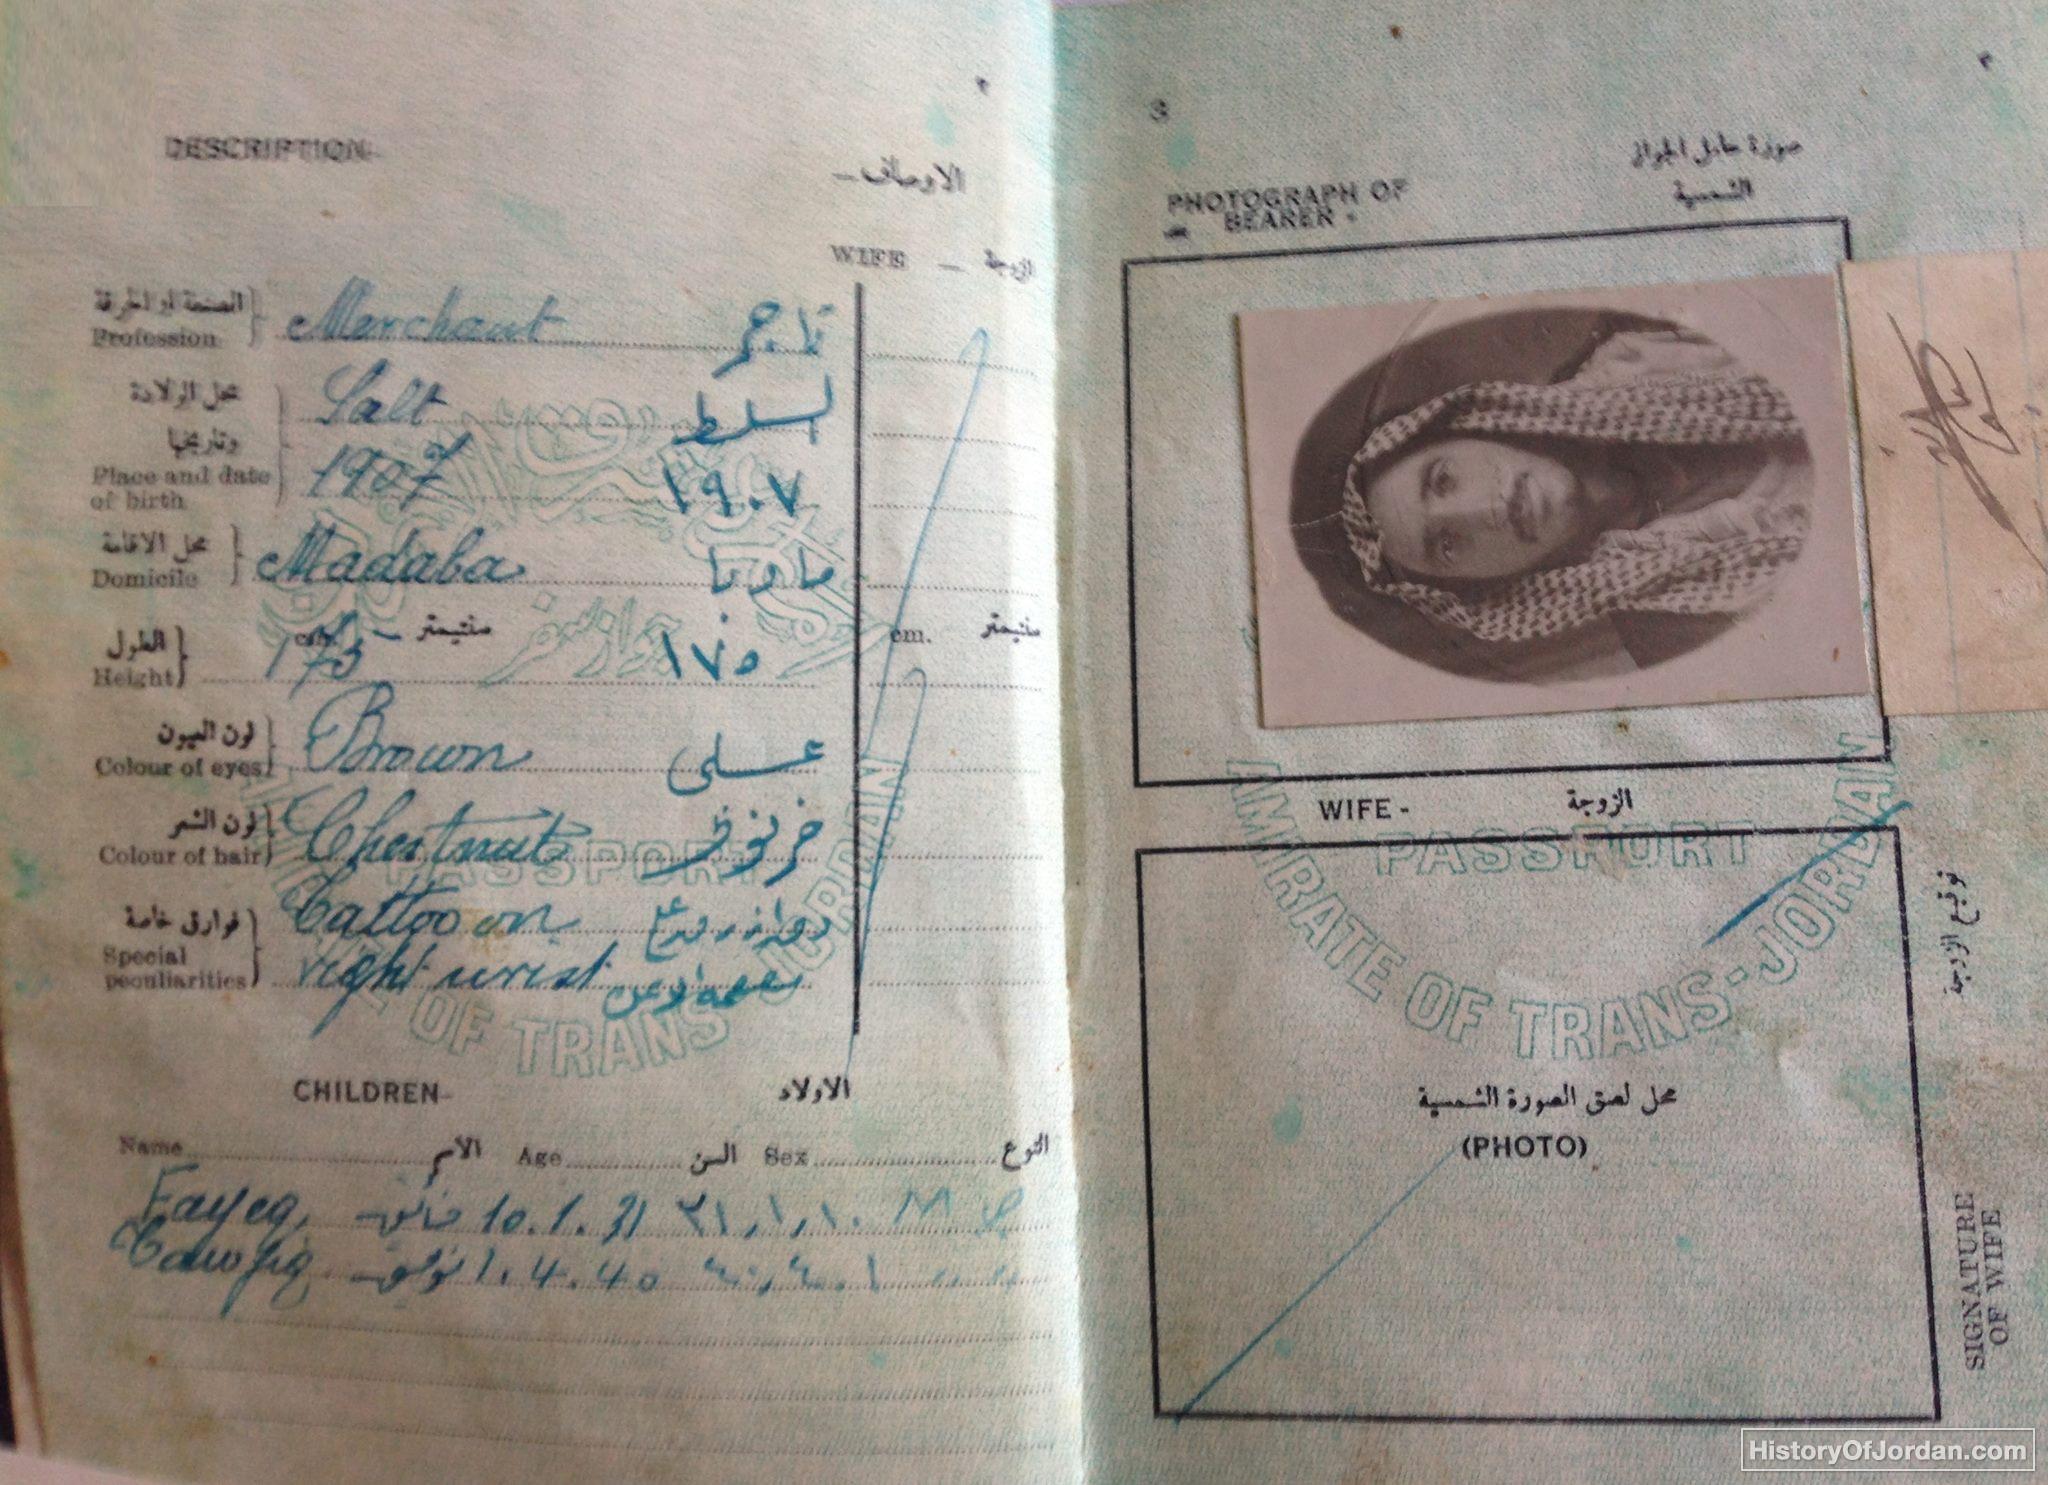 ٢
DESCRIPTION- الاوصاف -
WIFE - الزوجة
الصنعة او الحرفة
Profession Merchant تاجر
محل الولادة Salt السلط
وتاريخها
Place and date of birth 1907 ١٩٠٧
محل الاقامة
Domicile Madaba مادبا
الطول cm. سنتيمتر cm. سنتيمتر
Height 175 ١٧٥
لون العيون
Colour of eyes Brown عسلي
لون الشعر
Colour of hair Chestnut خرنوبي
فوارق خاصة Tattoo on
Special peculiarities right wrist
CHILDREN- الاولاد
Name الاسم Age السن Sex النوع
Fayeq فائق 10.1.31 ٣١,١,١٠ M
Tawfiq توفيق 1.4.40 ٤٠,٤,١ " "
جواز سفر
PASSPORT
AMIRATE OF TRANS-JORDAN
3 ٣
PHOTOGRAPH OF BEARER - صورة حامل الجواز
الشمسية
WIFE - الزوجة
PASSPORT
AMIRATE OF TRANS-JORDAN
محل لصق الصورة الشمسية
(PHOTO)
توقيع الزوجة
SIGNATURE OF WIFE
HistoryOfJordan.com